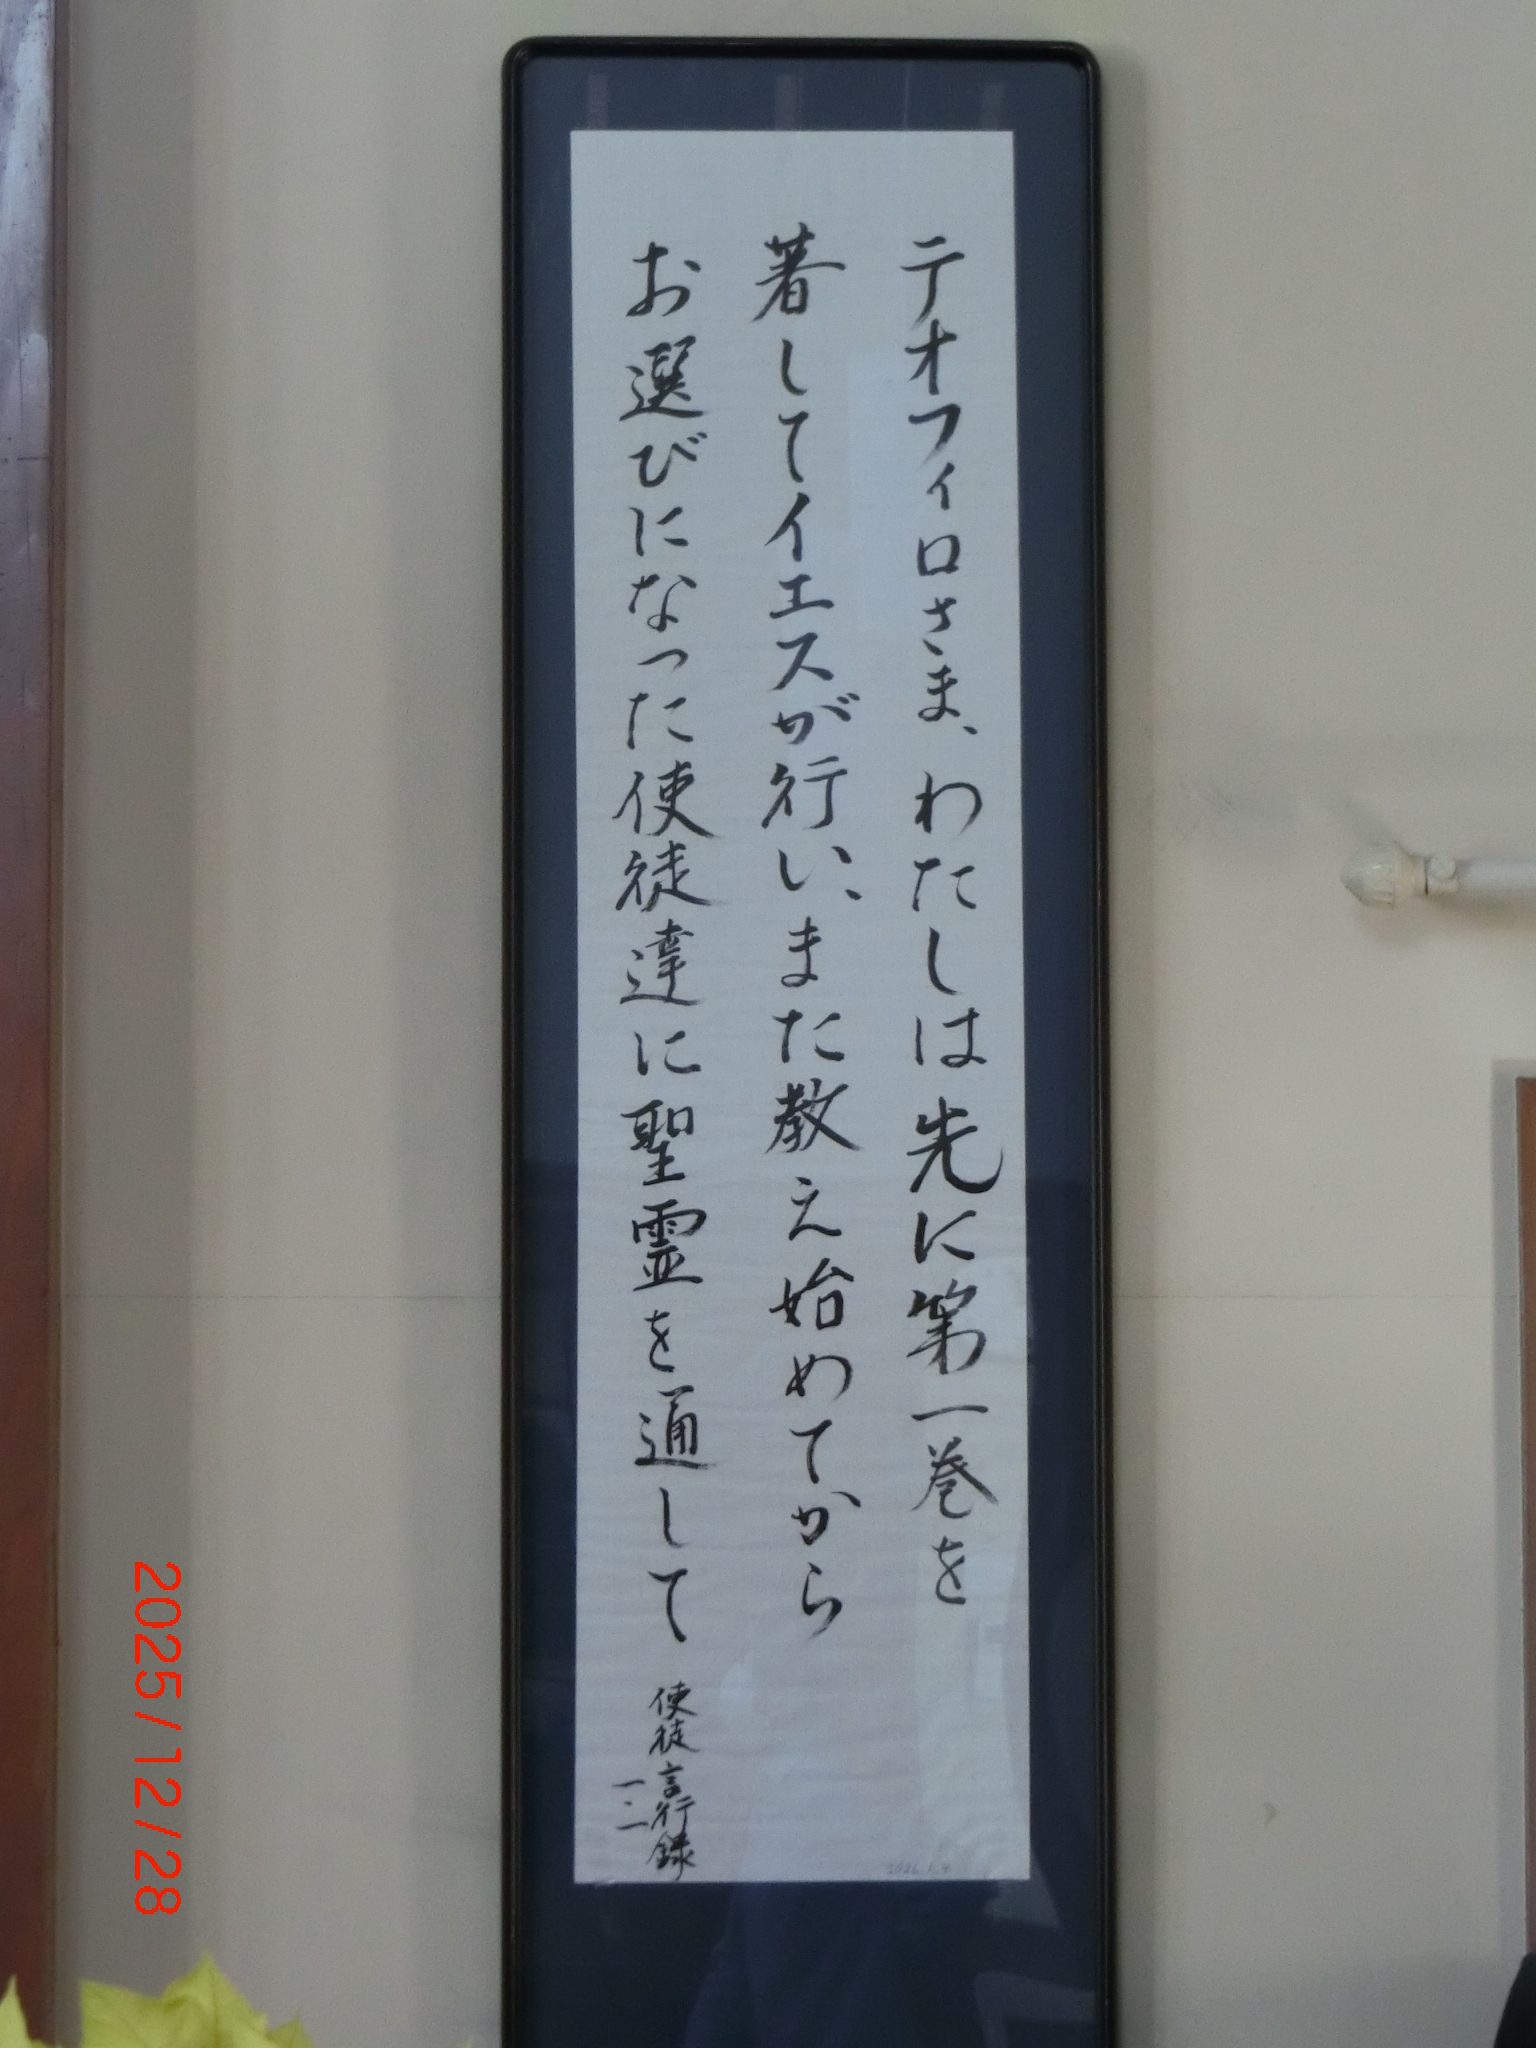 テオフィロさま、わたしは先に第一巻を
著してイエスが行い、また教え始めてから
お選びになった使徒達に聖霊を通して
使徒言行録
一・二
2025/12/28